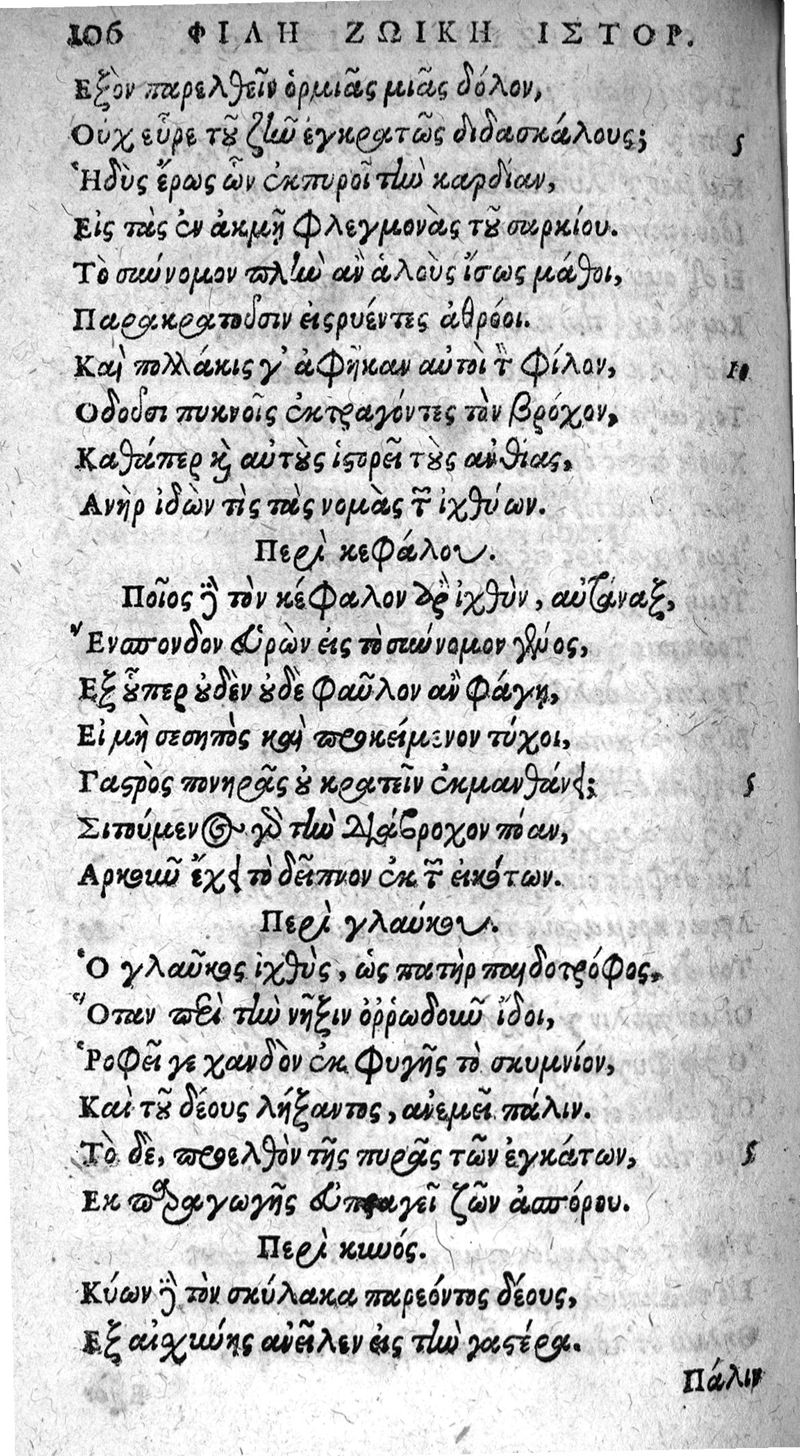 106 ΦΙΛΗ ΖΩΙΚΗ ΙΣΤΟΡ.
Εξὸν παρελθεῖν ὁρμιᾶς μιᾶς δόλον,
Οὐχ εὗρε τοῦ ζῆν ἐγκρατῶς διδασκάλους; 5
Ἡδὺς ἔρως ὢν ἐκπυροῖ τὴν καρδίαν,
Εἰς τὰς ἐν ἀκμῇ φλεγμονὰς τοῦ σαρκίου.
Τὸ σιώνομον πλὴν ἂν ἁλοὺς ἴσως μάθοι,
Παρακρατοῦσιν εἰςρυέντες ἀθρόοι.
Καὶ πολλάκις γ' ἀφῆκαν αὐτοὶ τὸν φίλον, 10
Οδοῦσι πυκνοῖς ἐκτραγόντες τὸν βρόχον,
Καθάπερ καὶ αὐτοὺς ἱστορεῖ τοὺς ἀνθίας,
Ανὴρ ἰδὼν τὶς τὰς νομὰς τῶν ἰχθύων.
Περὶ κεφάλου.
Ποῖος δὲ τὸν κέφαλον ἄρ' ἰχθὺν, αὐτάναξ,
Ἔνσπονδον εὑρὼν εἰς τὸ σύννομον γένος,
Εξ οὗπερ οὐδὲν οὐδὲ φαῦλον ἂν φάγῃ,
Εἰ μὴ σεσηπὸς καὶ προκείμενον τύχοι,
Γαστρὸς πονηρᾶς οὐ κρατεῖν ἐκμανθάνει; 5
Σιτούμενος γὰρ τὴν διάβροχον πόαν,
Αρκοῦν ἔχει τὸ δεῖπνον ἐκ τῶν εἰκότων.
Περὶ γλαύκου.
Ὁ γλαῦκος ἰχθὺς, ὡς πατὴρ παιδοτρόφος,
Ὅταν περὶ τὴν νῆξιν ὀῤῥωδοῦν ἴδοι,
Ῥοφεῖ γε χανδὸν ἐκ φυγῆς τὸ σκυμνίον,
Καὶ τοῦ δέους λήξαντος, ἀνεμεῖ πάλιν.
Τὸ δὲ, προελθὸν τῆς πυρᾶς τῶν ἐγκάτων, 5
Εκ παραγωγῆς εὐπαγεῖ ζῶν ἀσπόρου.
Περὶ κυνός.
Κύων δὲ τὸν σκύλακα παρεόντος δέους,
Εξ αἰχύνης ἀνεῖλεν εἰς τὴν γαστέρα.
Πάλιν